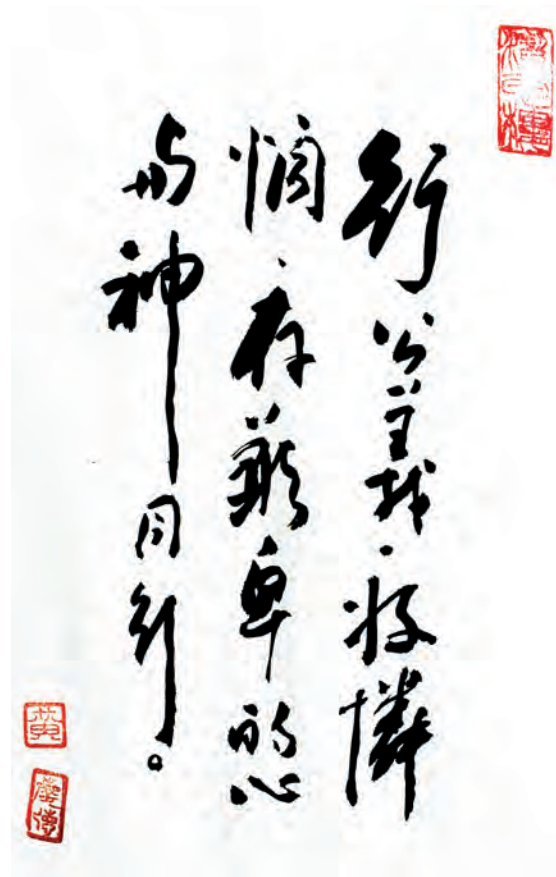 行公義·好憐
憫·存謙卑的心
與神同行。